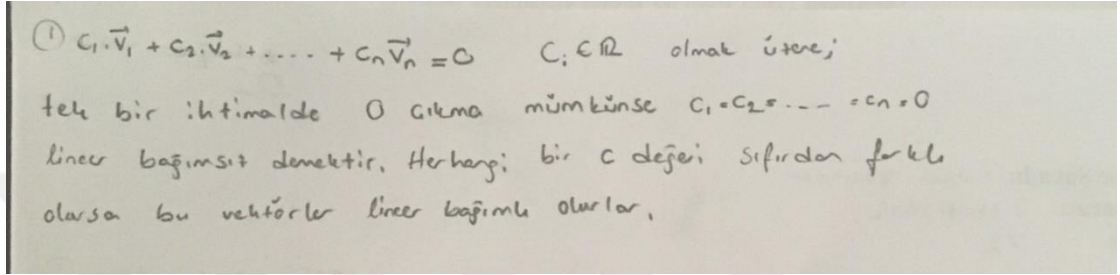 ① C₁.V⃗₁ + C₂.V⃗₂ + ..... + CₙV⃗ₙ = 0 Cᵢ ∈ ℝ olmak üzere;
tek bir ihtimalde 0 çıkma mümkünse C₁=C₂=....=Cn=0
lineer bağımsız demektir. Herhangi bir c değeri sıfırdan farklı
olursa bu vektörler lineer bağımlı olurlar.